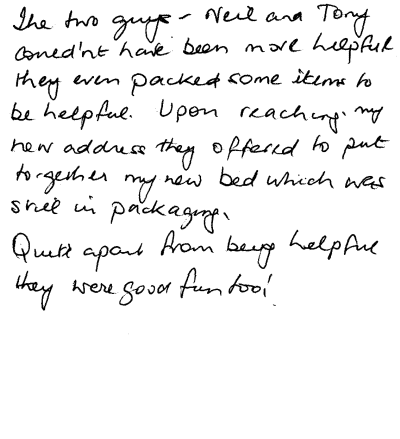 The two guys - Neil and Tony
could'nt have been more helpful
they even packed some items to
be helpful. Upon reaching my
new address they offered to put
together my new bed which was
still in packaging.
Quite apart from being helpful
they were good fun too!